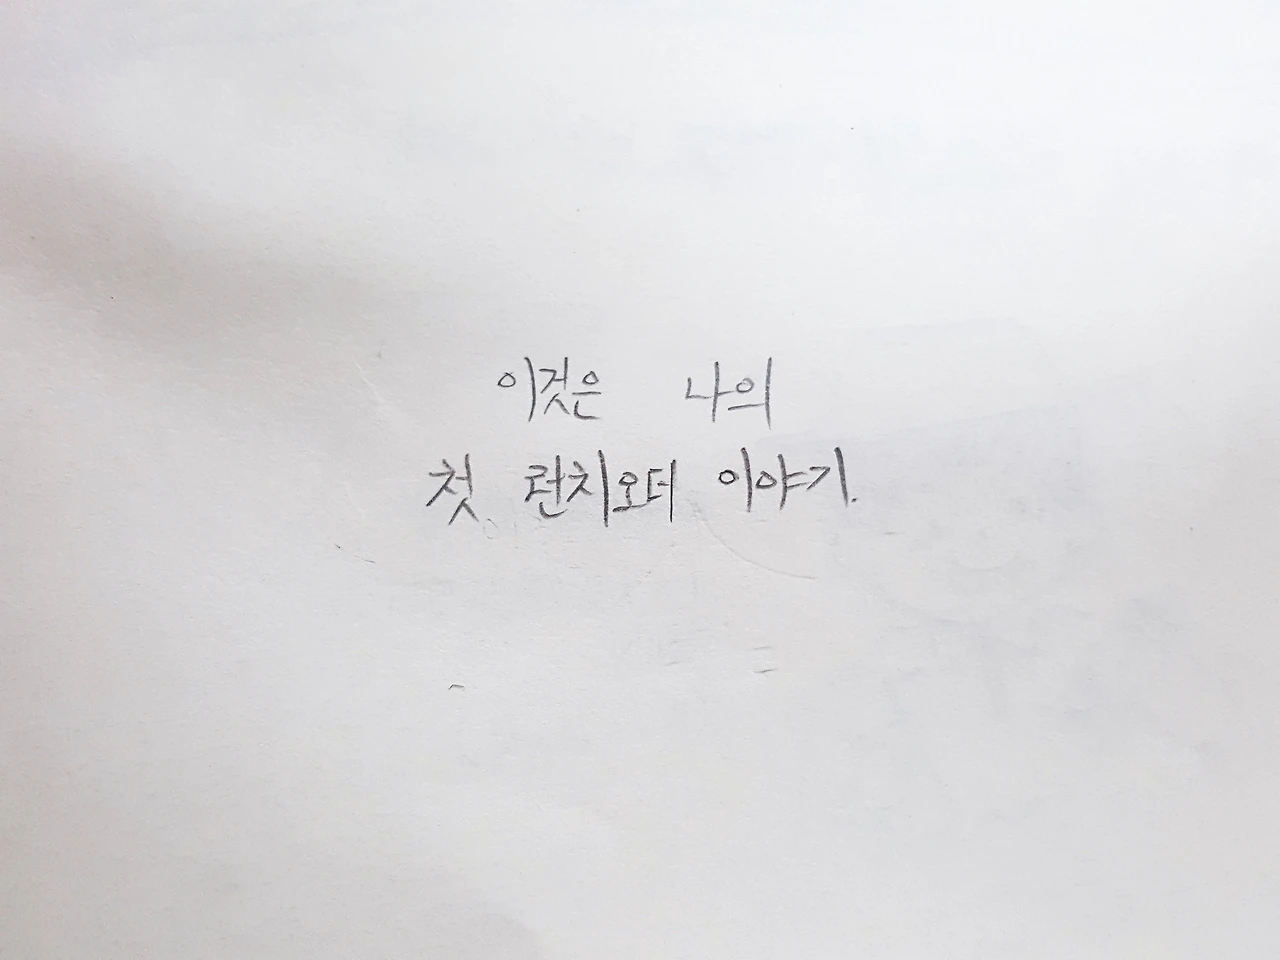 이것은 나의
첫 런치오더 이야기.